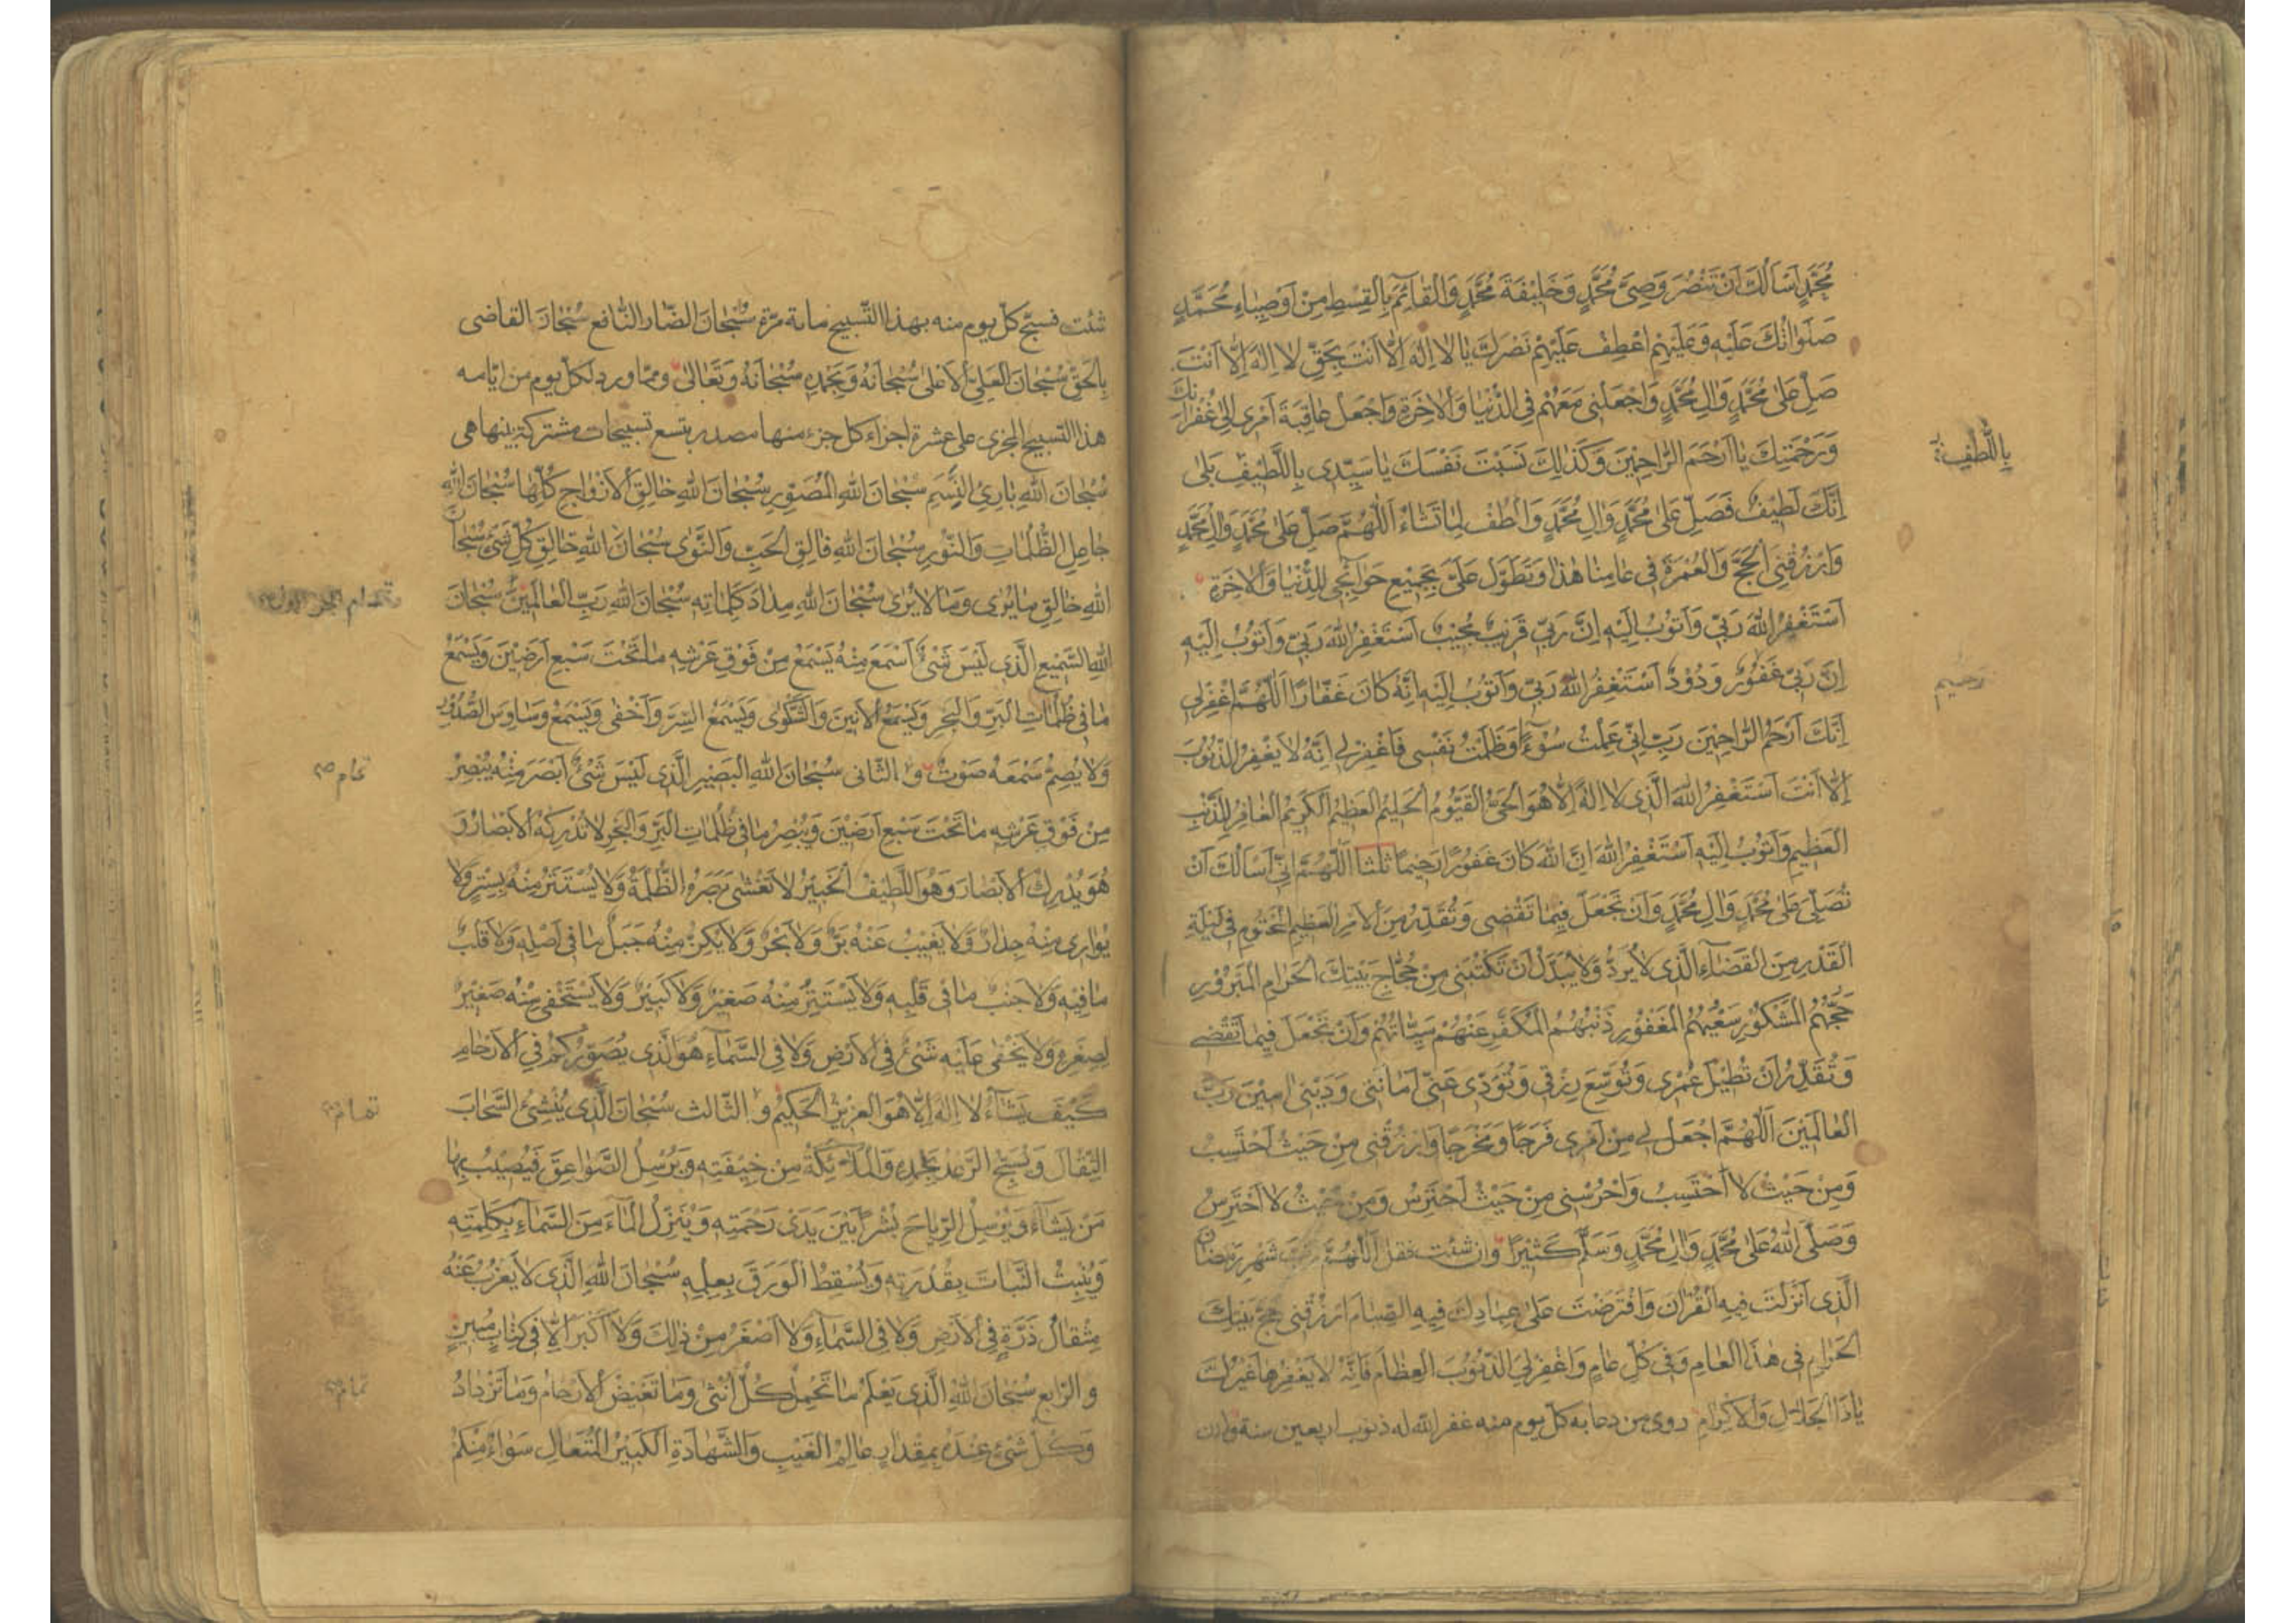 مُحَمَّدٍ اَسْاَلُكَ اَنْ تَنْصُرَ وَصِىَّ مُحَمَّدٍ وَخَليٖفَةَ مُحَمَّدٍ وَالْقٰآئِمَ بِالْقِسْطِ مِنْ اَوْصِيٰاءِ مُحَمَّدٍ
صَلَوٰاتُكَ عَلَيْهِ وَعَلَيْهِمْ اعْطِفْ عَلَيْهِمْ نَصْرَكَ يٰا لا اِلٰهَ اِلّٰا اَنْتَ بِحَقِّ لا اِلٰهَ اِلّٰا اَنْتَ
صَلِّ عَلىٰ مُحَمَّدٍ وَاٰلِ مُحَمَّدٍ وَاجْعَلْنى مَعَهُمْ فِى الدُّنْيٰا وَالْاٰخِرَةِ وَاجْعَلْ عٰاقِبَةَ اَمْرى اِلىٰ غُفْرٰانِكَ
وَرَحْمَتِكَ يٰا اَرْحَمَ الرّٰاحِميٖنَ وَكَذٰلِكَ نَسَبْتَ نَفْسَكَ يٰا سَيِّدى بِاللَّطيٖفِ بَلىٰ
بِاللُّطْفِ
اِنَّكَ لَطيٖفٌ فَصَلِّ عَلىٰ مُحَمَّدٍ وَاٰلِ مُحَمَّدٍ وَالْطُفْ لِمٰا تَشٰاءُ اَللّٰهُمَّ صَلِّ عَلىٰ مُحَمَّدٍ وَاٰلِ مُحَمَّدٍ
وَارْزُقْنِى الْحَجَّ وَالْعُمْرَةَ فى عٰامِنٰا هٰذٰا وَتَطَوَّلْ عَلَىَّ بِجَميٖعِ حَوٰآئِجى لِلدُّنْيٰا وَالْاٰخِرَةِ
اَسْتَغْفِرُ اللّٰهَ رَبّى وَاَتُوبُ اِلَيْهِ اِنَّ رَبّى قَريٖبٌ مُجيٖبٌ اَسْتَغْفِرُ اللّٰهَ رَبّى وَاَتُوبُ اِلَيْهِ
اِنَّ رَبّى غَفُورٌ وَدُودٌ اَسْتَغْفِرُ اللّٰهَ رَبّى وَاَتُوبُ اِلَيْهِ اِنَّهُ كٰانَ غَفّٰارًا اَللّٰهُمَّ اغْفِرْلى
رحيم
اِنَّكَ اَرْحَمُ الرّٰاحِميٖنَ رَبِّ اِنّى عَمِلْتُ سُوٓءًا وَظَلَمْتُ نَفْسى فَاغْفِرْلى اِنَّهُ لا يَغْفِرُ الذُّنُوبَ
اِلّٰا اَنْتَ اَسْتَغْفِرُ اللّٰهَ الَّذى لا اِلٰهَ اِلّٰا هُوَ الْحَىُّ الْقَيُّومُ الْحَليٖمُ الْعَظيٖمُ الْكَريٖمُ الْغٰافِرُ لِلذَّنْبِ
الْعَظيٖمِ وَاَتُوبُ اِلَيْهِ اَسْتَغْفِرُ اللّٰهَ اِنَّ اللّٰهَ كٰانَ غَفُورًا رَحيٖمًا ثلثا اَللّٰهُمَّ اِنّى اَسْاَلُكَ اَنْ
تُصَلِّىَ عَلىٰ مُحَمَّدٍ وَاٰلِ مُحَمَّدٍ وَاَنْ تَجْعَلَ فيٖمٰا تَقْضى وَتُقَدِّرُ مِنَ الْاَمْرِ الْعَظيٖمِ الْمَحْتُومِ فى لَيْلَةِ
الْقَدْرِ مِنَ الْقَضٰآءِ الَّذى لا يُرَدُّ وَلا يُبَدَّلُ اَنْ تَكْتُبَنى مِنْ حُجّٰاجِ بَيْتِكَ الْحَرٰامِ الْمَبْرُورِ
حَجُّهُمُ الْمَشْكُورِ سَعْيُهُمُ الْمَغْفُورِ ذَنْبُهُمُ الْمُكَفَّرِ عَنْهُمْ سَيِّئٰاتُهُمْ وَاَنْ تَجْعَلَ فيٖمٰا تَقْضى
وَتُقَدِّرُ اَنْ تُطيٖلَ عُمْرى وَتُوَسِّعَ رِزْقى وَتُؤَدِّىَ عَنّى اَمٰانَتى وَدَيْنى اٰميٖنَ رَبَّ
الْعٰالَميٖنَ اَللّٰهُمَّ اجْعَلْ لى مِنْ اَمْرى فَرَجًا وَمَخْرَجًا وَارْزُقْنى مِنْ حَيْثُ اَحْتَسِبُ
وَمِنْ حَيْثُ لا اَحْتَسِبُ وَاحْرُسْنى مِنْ حَيْثُ اَحْتَرِسُ وَمِنْ حَيْثُ لا اَحْتَرِسُ
وَصَلَّى اللّٰهُ عَلىٰ مُحَمَّدٍ وَاٰلِ مُحَمَّدٍ وَسَلَّمَ كَثيٖرًا وان شئت فقل اَللّٰهُمَّ رَبَّ شَهْرِ رَمَضٰانَ
الَّذى اَنْزَلْتَ فيٖهِ الْقُرْاٰنَ وَافْتَرَضْتَ عَلىٰ عِبٰادِكَ فيٖهِ الصِّيٰامَ ارْزُقْنى حَجَّ بَيْتِكَ
الْحَرٰامِ فى هٰذَا الْعٰامِ وَفى كُلِّ عٰامٍ وَاغْفِرْ لِىَ الذُّنُوبَ الْعِظٰامَ فَاِنَّهُ لا يَغْفِرُهٰا غَيْرُكَ
يٰا ذَا الْجَلٰالِ وَالْاِكْرٰامِ روى من دعا به كل يوم منه غفر الله له ذنوب اربعين سنة وان
شئت فسبّح كلّ يوم منه بهذا التّسبيح مائة مرّة سُبْحٰانَ الضّٰارِّ النّٰافِعِ سُبْحٰانَ القاضى
بِالْحَقِّ سُبْحٰانَ الْعَلِىِّ الْاَعْلىٰ سُبْحٰانَهُ وَبِحَمْدِهِ سُبْحٰانَهُ وَتَعٰالىٰ وممّا ورد لكلّ يوم من ايّامه
هذا التسبيح المجزى على عشرة اجزاء كل جزء منها مصدر بتسع تسبيحات مشتركة بينها هى
سُبْحٰانَ اللّٰهِ بٰارِئِ النَّسَمِ سُبْحٰانَ اللّٰهِ الْمُصَوِّرِ سُبْحٰانَ اللّٰهِ خٰالِقِ الْاَزْوٰاجِ كُلِّهٰا سُبْحٰانَ اللّٰهِ
جٰاعِلِ الظُّلُمٰاتِ وَالنُّورِ سُبْحٰانَ اللّٰهِ فٰالِقِ الْحَبِّ وَالنَّوٰى سُبْحٰانَ اللّٰهِ خٰالِقِ كُلِّ شَىْءٍ سُبْحٰانَ
اللّٰهِ خٰالِقِ مٰا يُرٰى وَمٰا لا يُرٰى سُبْحٰانَ اللّٰهِ مِدٰادَ كَلِمٰاتِهِ سُبْحٰانَ اللّٰهِ رَبِّ الْعٰالَميٖنَ سُبْحٰانَ
اللّٰهِ السَّميٖعِ الَّذى لَيْسَ شَىْءٌ اَسْمَعَ مِنْهُ يَسْمَعُ مِنْ فَوْقِ عَرْشِهِ مٰا تَحْتَ سَبْعِ اَرَضيٖنَ وَيَسْمَعُ
مٰا فى ظُلُمٰاتِ الْبَرِّ وَالْبَحْرِ وَيَسْمَعُ الْاَنيٖنَ وَالشَّكْوٰى وَيَسْمَعُ السِّرَّ وَاَخْفىٰ وَيَسْمَعُ وَسٰاوِسَ الصُّدُورِ
وَلا يُصِمُّ سَمْعَهُ صَوْتٌ و الثّانى سُبْحٰانَ اللّٰهِ الْبَصيٖرِ الَّذى لَيْسَ شَىْءٌ اَبْصَرَ مِنْهُ يُبْصِرُ
تمام
مِنْ فَوْقِ عَرْشِهِ مٰا تَحْتَ سَبْعِ اَرَضيٖنَ وَيُبْصِرُ مٰا فى ظُلُمٰاتِ الْبَرِّ وَالْبَحْرِ لا تُدْرِكُهُ الْاَبْصٰارُ وَ
هُوَ يُدْرِكُ الْاَبْصٰارَ وَهُوَ اللَّطيٖفُ الْخَبيٖرُ لا تَغْشىٰ بَصَرَهُ الظُّلْمَةُ وَلا يُسْتَتَرُ مِنْهُ بِسِتْرٍ وَلا
يُوٰارى مِنْهُ جِدٰارٌ وَلا يَغيٖبُ عَنْهُ بَرٌّ وَلا بَحْرٌ وَلا يَكِنُّ مِنْهُ جَبَلٌ مٰا فى اَصْلِهِ وَلا قَلْبٌ
مٰا فيٖهِ وَلا جَنْبٌ مٰا فى قَلْبِهِ وَلا يَسْتَتِرُ مِنْهُ صَغيٖرٌ وَلا كَبيٖرٌ وَلا يَسْتَخْفى مِنْهُ صَغيٖرٌ
لِصِغَرِهِ وَلا يَخْفىٰ عَلَيْهِ شَىْءٌ فِى الْاَرْضِ وَلا فِى السَّمٰآءِ هُوَ الَّذى يُصَوِّرُكُمْ فِى الْاَرْحٰامِ
كَيْفَ يَشٰآءُ لا اِلٰهَ اِلّٰا هُوَ الْعَزيٖزُ الْحَكيٖمُ و الثّالث سُبْحٰانَ الَّذى يُنْشِئُ السَّحٰابَ
تمام
الثِّقٰالَ وَيُسَبِّحُ الرَّعْدُ بِحَمْدِهِ وَالْمَلٰٓئِكَةُ مِنْ خيٖفَتِهِ وَيُرْسِلُ الصَّوٰاعِقَ فَيُصيٖبُ بِهٰا
مَنْ يَشٰآءُ وَيُرْسِلُ الرِّيٰاحَ بُشْرًا بَيْنَ يَدَىْ رَحْمَتِهِ وَيُنَزِّلُ الْمٰآءَ مِنَ السَّمٰآءِ بِكَلِمَتِهِ
وَيُنْبِتُ النَّبٰاتَ بِقُدْرَتِهِ وَيُسْقِطُ الْوَرَقَ بِعِلْمِهِ سُبْحٰانَ اللّٰهِ الَّذى لا يَعْزُبُ عَنْهُ
مِثْقٰالُ ذَرَّةٍ فِى الْاَرْضِ وَلا فِى السَّمٰآءِ وَلا اَصْغَرُ مِنْ ذٰلِكَ وَلا اَكْبَرُ اِلّٰا فى كِتٰابٍ مُبيٖنٍ
و الرّابع سُبْحٰانَ اللّٰهِ الَّذى يَعْلَمُ مٰا تَحْمِلُ كُلُّ اُنْثىٰ وَمٰا تَغيٖضُ الْاَرْحٰامُ وَمٰا تَزْدٰادُ
تمام
وَكُلُّ شَىْءٍ عِنْدَهُ بِمِقْدٰارٍ عٰالِمُ الْغَيْبِ وَالشَّهٰادَةِ الْكَبيٖرُ الْمُتَعٰالِ سَوٰاءٌ مِنْكُمْ